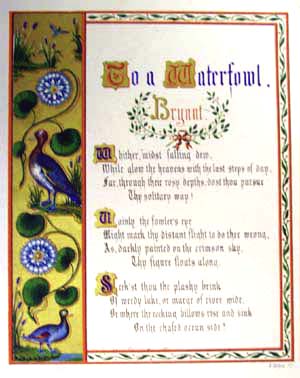 To a Waterfowl.
Bryant.
Whither, 'midst falling dew,
While glow the heavens with the last steps of day,
Far, through their rosy depths, dost thou pursue
Thy solitary way?
Vainly the fowler's eye
Might mark thy distant flight to do thee wrong,
As, darkly painted on the crimson sky,
Thy figure floats along.
Seek'st thou the plashy brink
Of weedy lake, or marge of river wide,
Or where the rocking billows rise and sink
On the chafed ocean side?